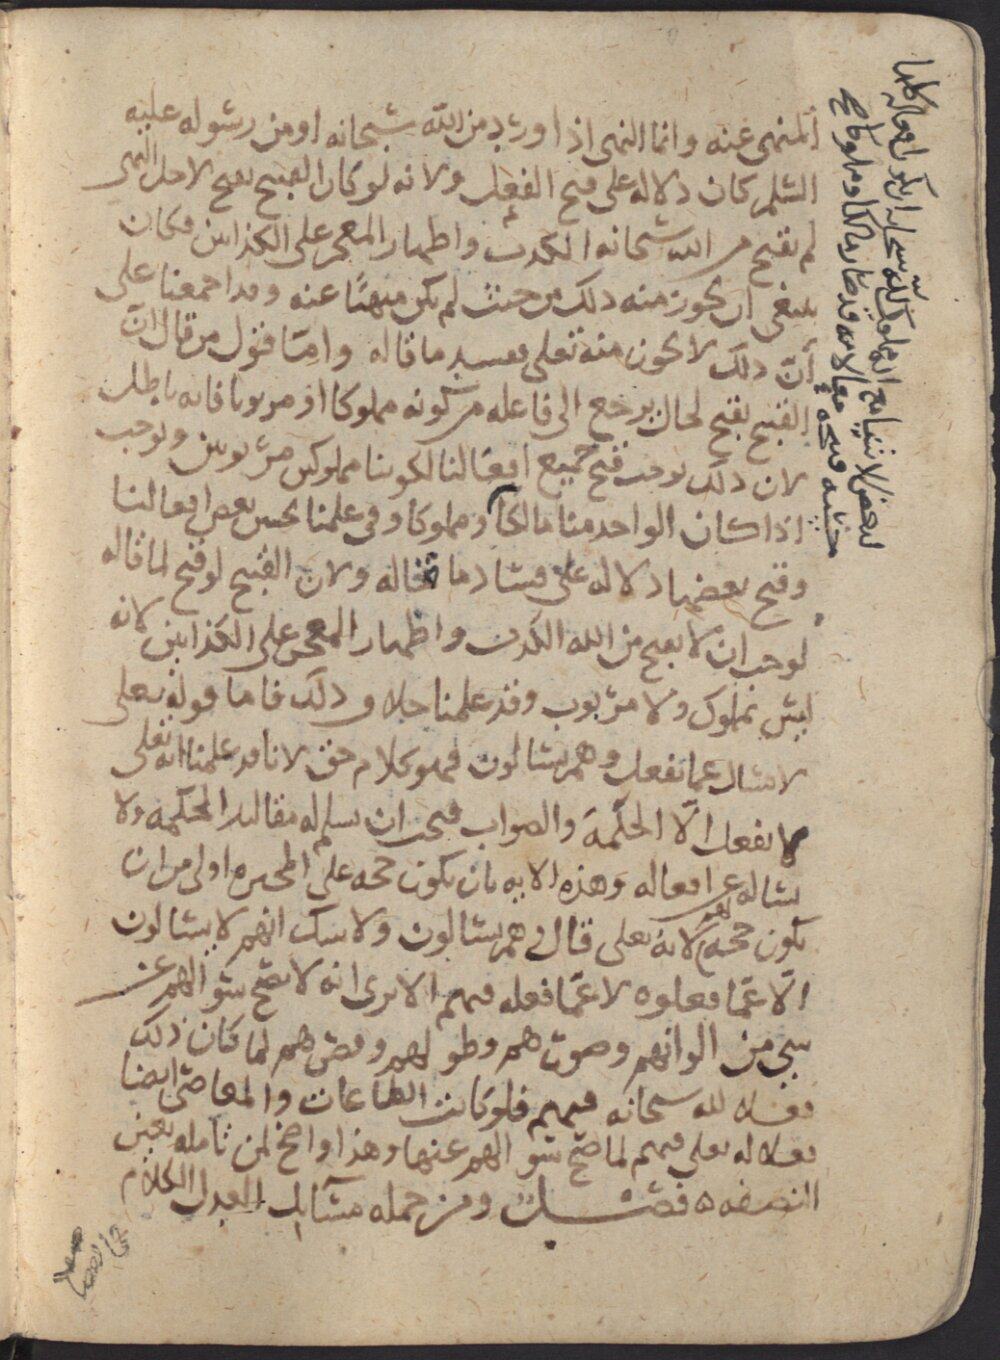 المنهى عنه وانما النهى اذا ورد من الله سبحانه او من رسوله عليه
السلم كان دلاله على قبح الفعل ولانه لو كان القبيح يقبح لاجل النهى
لم يقبح من الله سبحانه الكذب واظهار المعجز على الكذابين فكان
ينبغى ان يجوز منه ذلك من حيث لم يكن منهيًا عنه وقد اجمعنا على
أن ذلك لا يجوز منه تعلى ففسد ما قاله وامّا قول من قال انّ
القبيح يقبح لحال يرجع الى فاعله من كونه مملوكا او مربوبا فانه باطل
لان ذلك يوجب قبح جميع افعالنا لكوننا مملوكين مربوبين ويوجب
اذا كان الواحد منا مالكا ومملوكا وفى علمنا بحسن بعض افعالنا
وقبح بعضها دلاله على فساد ما قاله ولان القبيح لو قبح لما قاله
لوجب ان لا يقبح من الله الكذب واظهار المعجز على الكذابين لانه
ليس بمملوك ولا مربوب وقد علمنا خلاف ذلك فاما قوله تعلى
لا يسال عما يفعل وهم يسالون فهو كلام حق لانا قد علمنا انه تعلى
لا يفعل الّا الحكمة والصواب فيجب ان يسلم له مقاليد الحكمه ولا
يساله عن افعاله وهذه الايه بان تكون حجه على المجبره اولى من ان
تكون حجه لهم لانه تعلى قال وهم يسالون ولا شك انهم لا يسالون
الّا عمّا فعلوه لا عمّا فعله فيهم الا ترى انه لا يصح سوالهم عن
شى من الوانهم وصورهم وطولهم وقصرهم لما كان ذلك
فعلا لله سبحانه فيهم فلو كانت الطاعات والمعاصى ايضا
فعلا له تعلى فيهم لما صح سوالهم عنها وهذا واضح لمن تامله بعين
النصفه ه فصــــل ومن جمله مسائل العدل الكلام